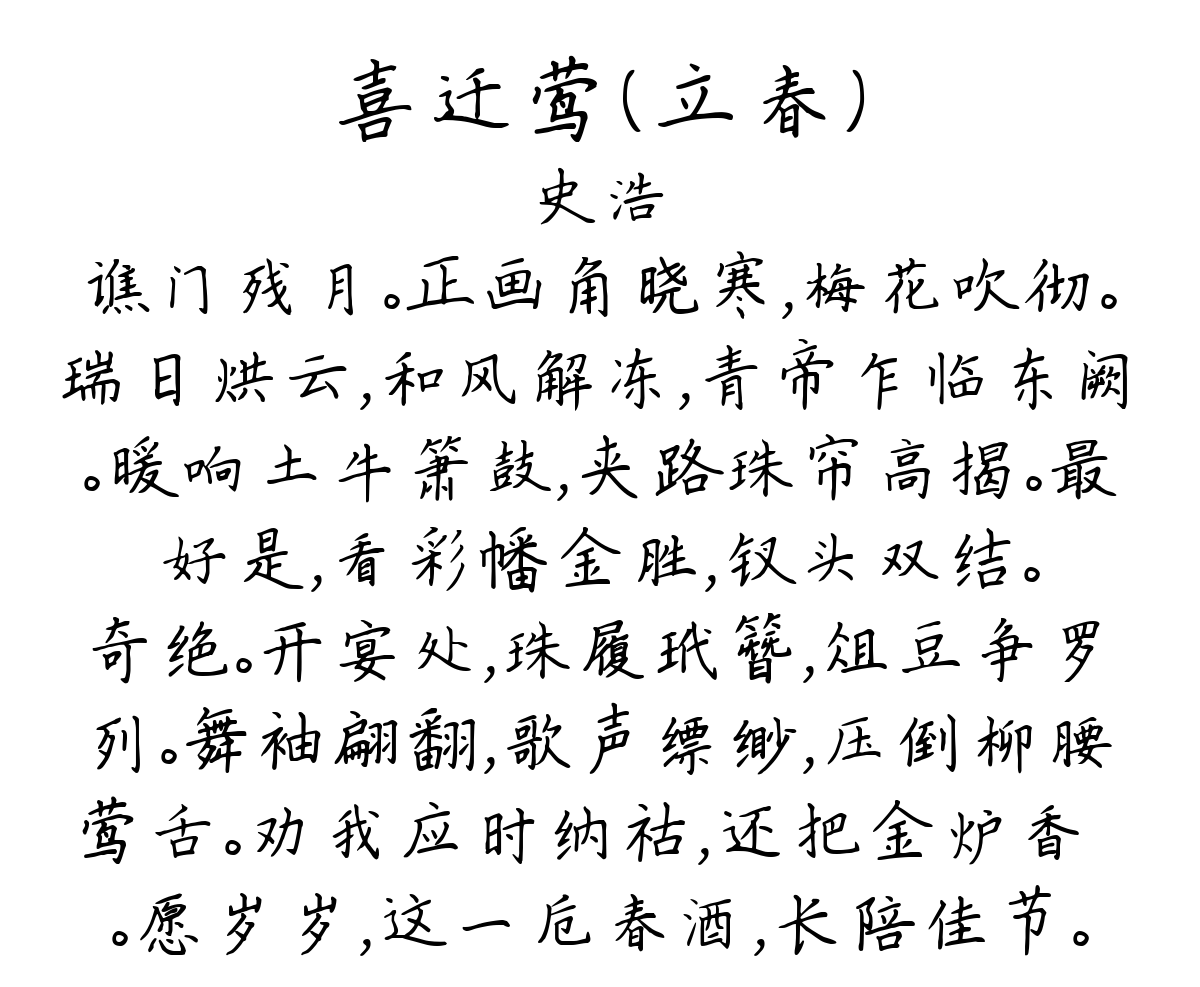 喜迁莺(立春)
史浩
谯门残月。正画角晓寒,梅花吹彻。
瑞日烘云,和风解冻,青帝乍临东阙
。暖响土牛箫鼓,夹路珠帘高揭。最
好是,看彩幡金胜,钗头双结。
奇绝。开宴处,珠履玳簪,俎豆争罗
列。舞袖翩翻,歌声缥缈,压倒柳腰
莺舌。劝我应时纳祜,还把金炉香
。愿岁岁,这一卮春酒,长陪佳节。